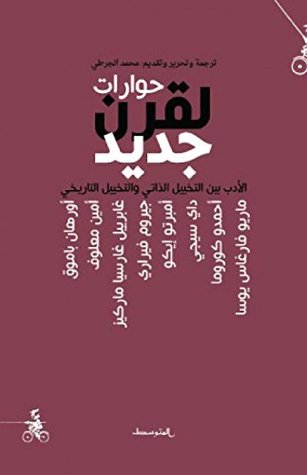 ترجمة وتحرير وتقديم: محمد الجرطي
حوارات
لقرن
جديد
الأدب بين التخييل الذاتي والتخييل التاريخي
ماريو فارغاس يوسا
أحمدو كوروما
داي سيجي
أمبرتو إيكو
جيروم فيراري
غابرييل غارسيا ماركيز
أمين معلوف
أورهان باموق
المتوسط